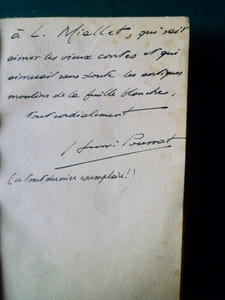 à L. Miallet, qui sait
aimer les vieux contes et qui
aimerait sans doute les antiques
moulins de la feuille blanche,
tout cordialement
Henri Pourrat
(ce tout dernier exemplaire!)